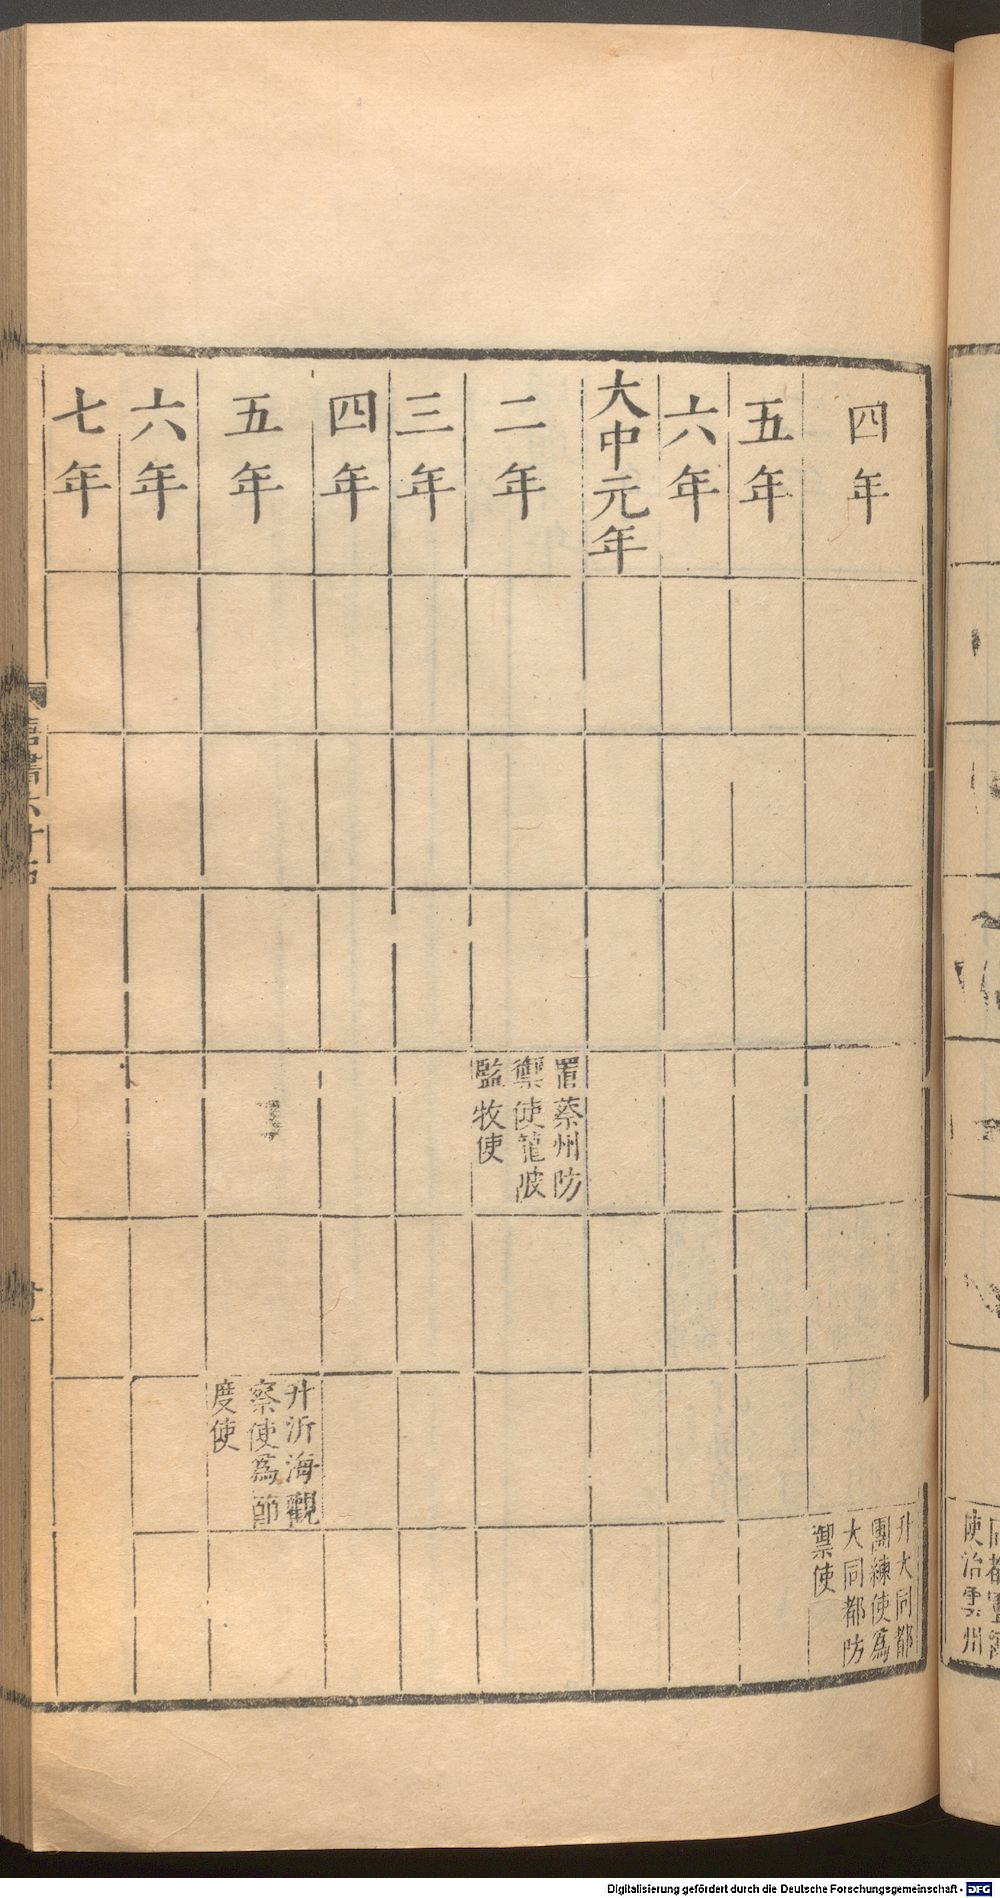 四年
升大同都
團練使爲
大同都防
禦使
五年
六年
大中元年
二年
置蔡州防
禦使龍陂
監牧使
三年
四年
五年
升沂海觀
察使爲節
度使
六年
七年
使治雲州
Digitalisierung gefördert durch die Deutsche Forschungsgemeinschaft - DFG